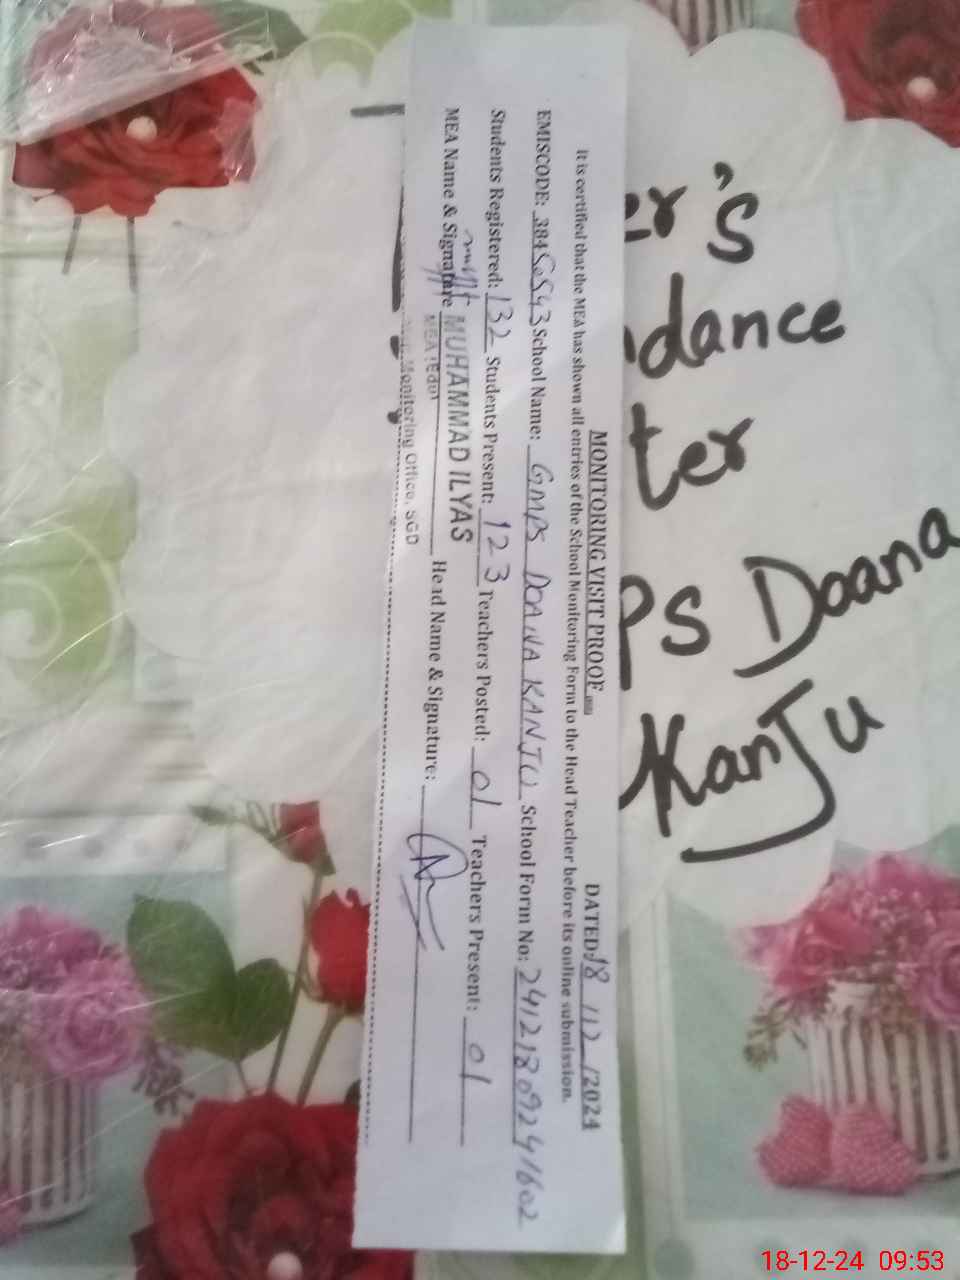 MONITORING VISIT PROOF
DATED: 18 / 12 / 2024
It is certified that the MEA has shown all entries of the School Monitoring Form to the Head Teacher before its online submission.
EMISCODE: 38450543 School Name: GMPS DOANA KANJU School Form No: 24121809241602
Students Registered: 132 Students Present: 123 Teachers Posted: 01 Teachers Present: 01
MEA Name & Signature MUHAMMAD ILYAS Head Name & Signature:
MEA (Edu)
Monitoring Office, SGD
er's
dance
ter
PS Doana
KanJu
18-12-24 09:53